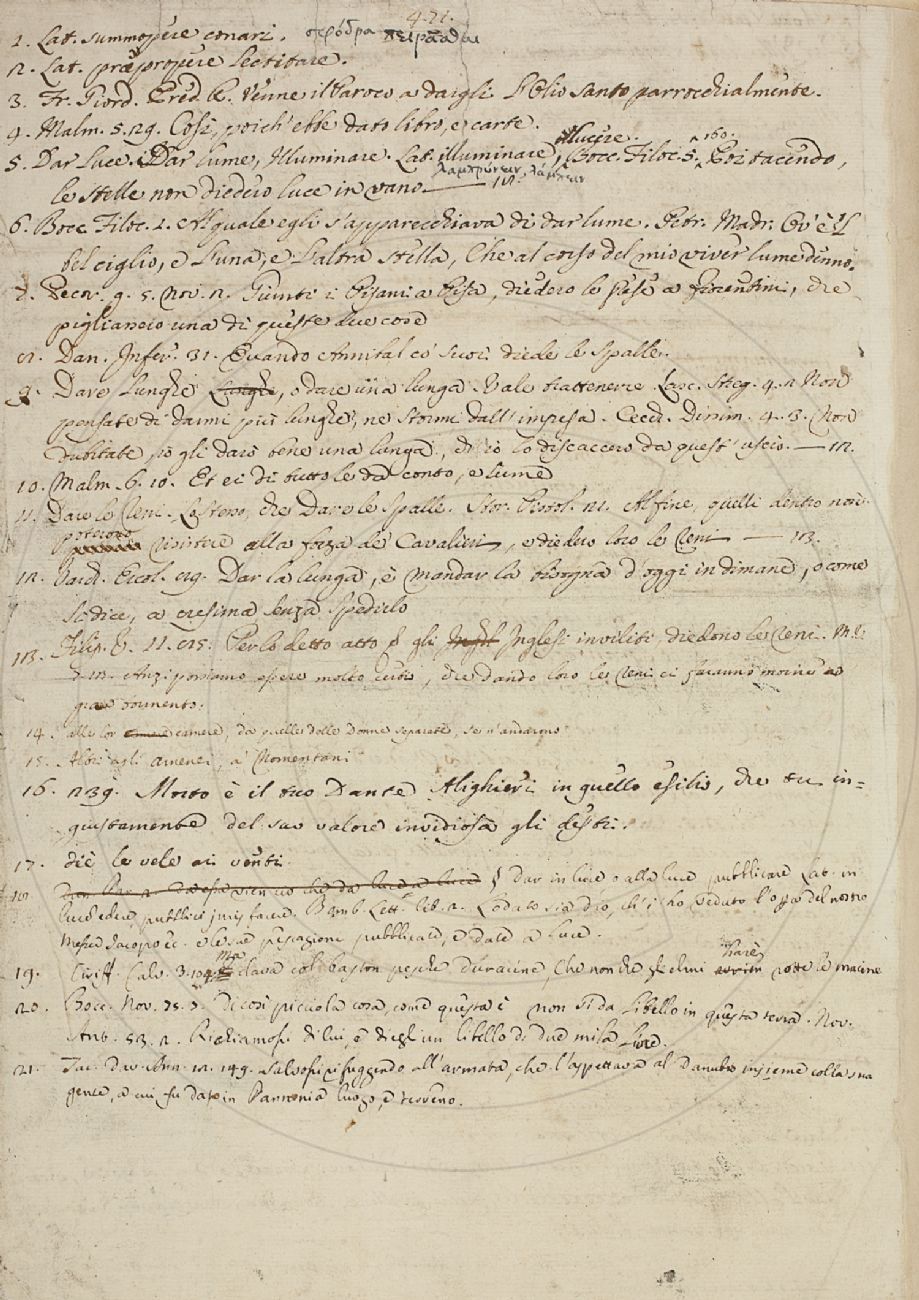 421.
1. Lat. summopere conari. σφόδρα πειρᾶσθαι
2. Lat. præpropere lectitare.
3. Fr. Giord. Pred. R. Venne il Paroco a dargli l'Olio santo parrocchialmente.
4. Malm. 5. 29. Così, poich' ebbe dato libro, e carte.
5. Dar luce. Dar lume, Illuminare. Lat. illuminare, illucere. Bocc. Filoc. 5. 160. Poi tacendo,
λαμπρύνειν, λάμπειν
le stelle non diedero luce in vano. — 118.
6. Bocc. Filoc. 2. Al quale egli s'apparecchiava di dar lume. Petr. Madr. Ov' è 'l
bel ciglio, e l'una, e l'altra stella, Che al corso del mio viver lume denno.
7. Pecor. g. 5. Nov. 2. Giunti i Pisani a Pisa, diedero le prese a' fiorentini, che
pigliassero una di queste due cose
8. Dan. Infer. 31. Quando Annibal co' suoi diede le spalle.
9. Dare lunghe lunghe, o dare una lunga. Vale trattenere. Lasc. Streg. 4. 2. Non
pensate di darmi più lunghe, nè stormi dall' impresa. Cecch. Dissim. 4. 3. Non
dubitate io gli darò bene una lunga, ch' io lo discaccerò da quest' uscio. — 12.
10. Malm. 6. 10. Et ei di tutto le dà conto, e lume
11. Dare le Reni. Lo stesso, che Dare le spalle. Stor. Pistol. 21. Alfine, quelli dentro non
poterono resistere alla forza de' Cavalieri, e diedero loro le Reni — 13.
12. Vard. Ercol. 89. Dar la lunga, è mandar la bisogna d'oggi in dimane, o come
si dice, a cresima senza spedirlo
13. Filip. 11. 85. Per lo detto atto gli Inghl Inglesi inviliti diedono le Reni.
Anzi possiamo essere molto certi, che dando loro le Reni ci faranno morire a
gran tormento.
14. alle lor camere camere, da quelle delle Donne separate, se n' andarono
15. Altri agli amenei, a' Nomentani
16. 239. Morto è il tuo Dante Alighieri in quello esilio, che tu in=
giustamente del suo valore invidiosa gli desti.
17. diè le vele ai venti
18. dar in luce o alla luce pubblicare Lat. in
lucem edere, publici juris facere. Bemb. Lett. lib. 2. Lodato sia dio, ch' i' ho veduto l'opra del nostro
Messer Jacopo ec. e le sue pubblicate, e date a luce.
19. Ciriff. Calv. 3. Ma dava col baston pesche duracine, Che non che gli elmi harè rotte le macine
20. Bocc. Nov. 75. 3. Di così picciola cosa, come questa è non si dà libello in questa terra. Nov.
Ant. 53. 2. Richiamossi di lui, e diegli un libello di due mila lire.
21. Tac. Dav. Ann. 12. 149. Salvossi rifuggendo all' armata, che l'aspettava al Danubio insieme colla sua
gente, a cui fu dato in Pannonia luogo, e terreno.